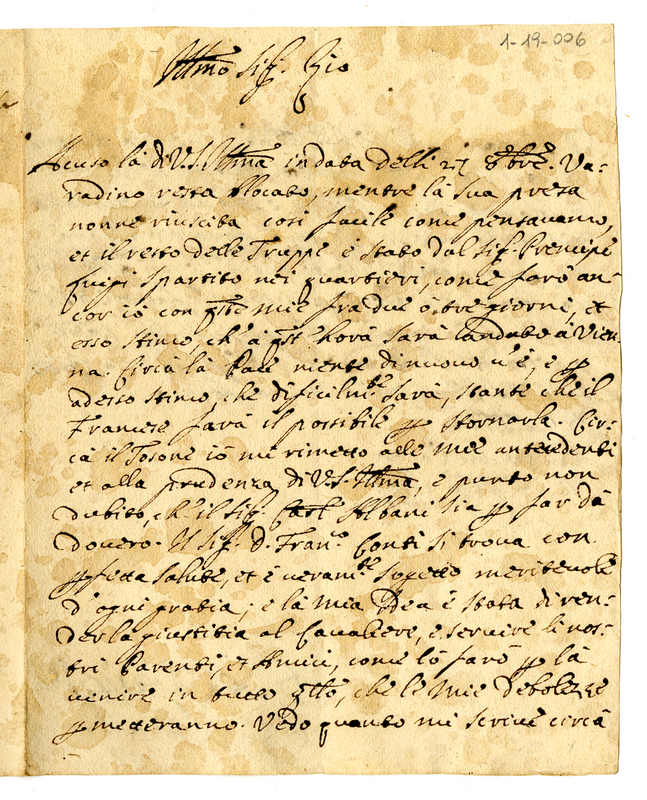 1-19-006
Illmo Sig.r Zio
Accuso la di V.S. Illma in data delli 27 8bre. Va-
radino resta blocato, mentre la sua presa
nonne riuscita cosi facile come pensavamo,
et il resto delle Truppe è stato dal Sig.r Prencipe
Luigi spartito nei quartieri, come farò an-
cor iò con qste mie fra due ò tre giorni, et
esso stimo, ch'à qst'hora sarà landato à Vien-
na. Circa la Pace niente di nuovo v'è, e p
adesso stimo, che dificilmte sarà, stante che il
Francese farà il possibile p stornarla. Cir-
ca il Tosone iò mi rimetto alle mie antecedenti
et alla prudenza di V.S. Illma, e punto non
dubito, ch'il Sig.r Carl Albani sia p far dà
dovero. Il Sig.r D. Fran.co Conti si trova con
pfetta salute, et è veramte sogetto meritevole
d'ogni gratia; e la mia Idea è stata di ren-
der la giustitia al Cavaliere, e servire li nos-
tri Parenti, et Amici, come lò farò p là
venire in tutto qllo, che le mie debolezze
pmetteranno. Vedo quanto mi scrive circa